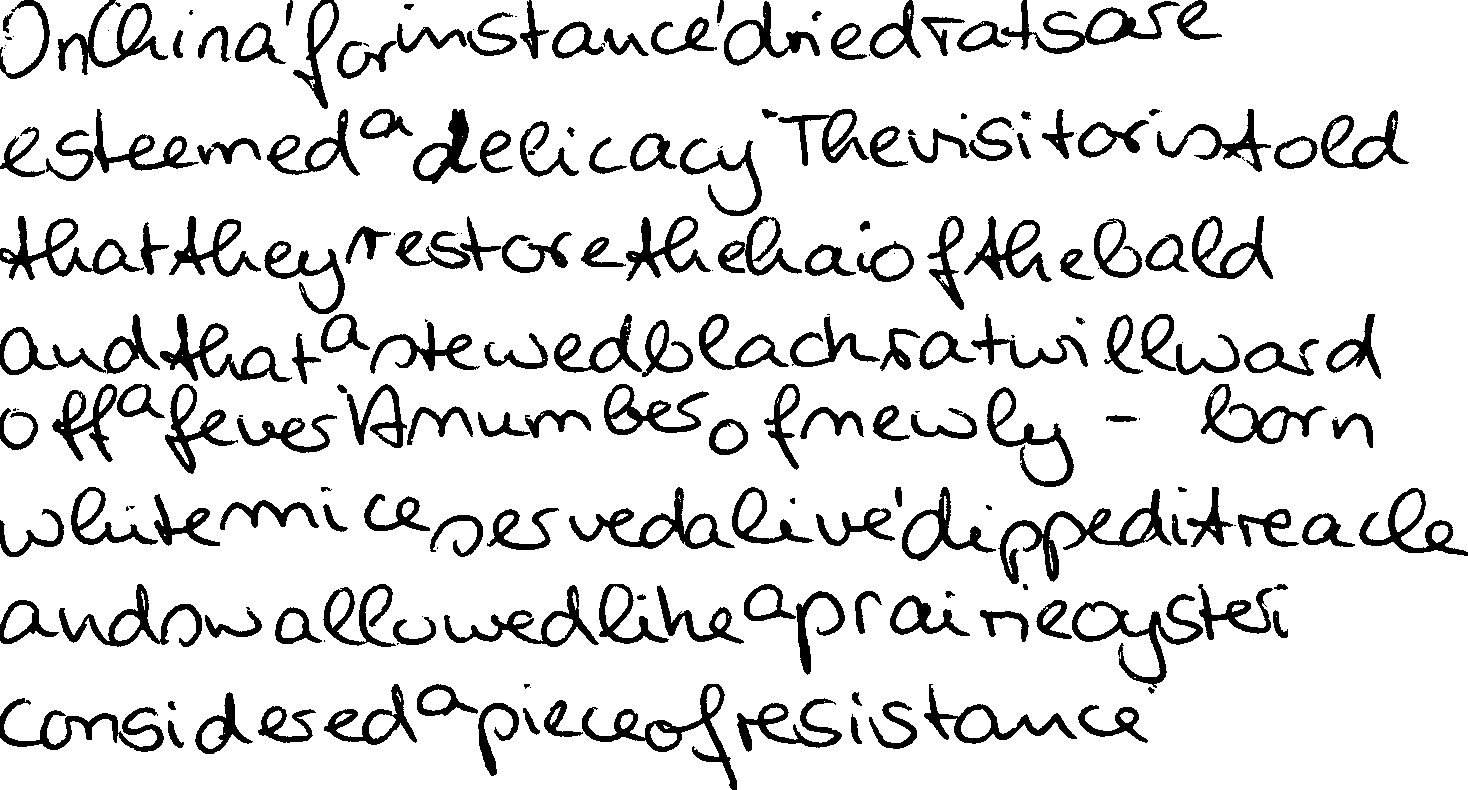 On China' for instance' dried rats are
esteemed a delicacy' The visitor is told
that they restore the hai of the bald
and that a stewed black rat will ward
off a fever' A number of newly - born
white mice served alive' dipped i treacle
and swallowed like a prairie oyster i
considered a piece of resistance'